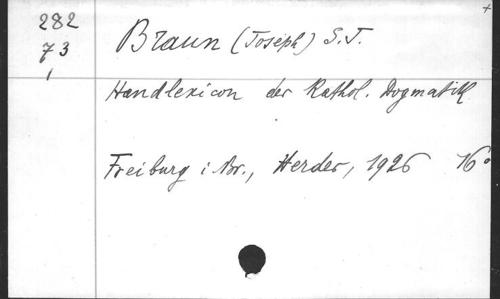 282
73
Braun (Joseph) S.J.
Handlexicon der Kathol. Dogmatik
Freiburg i. Br., Herder, 1926 16°